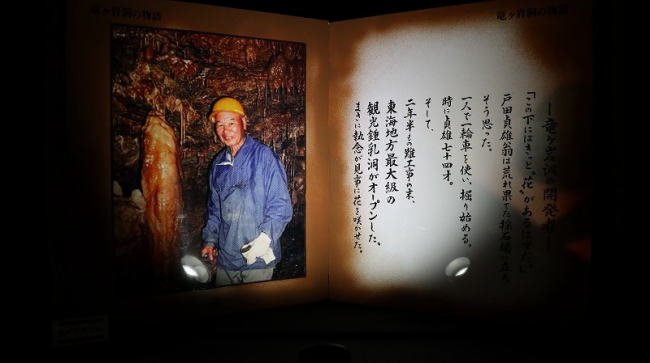 竜ヶ岩洞の物語
―竜ヶ岩洞の開発者―
「この下にはきっと"花"があるはずだ。」
戸田貞雄翁は荒れ果てた採石場に立ち
そう思った。
一人で一輪車を使い、掘り始める。
時に貞雄七十四才。
そして、
二年半もの難工事の末、
東海地方最大級の
観光鍾乳洞がオープンした。
まさに執念が見事に花を咲かせた。
竜ヶ岩洞の物語